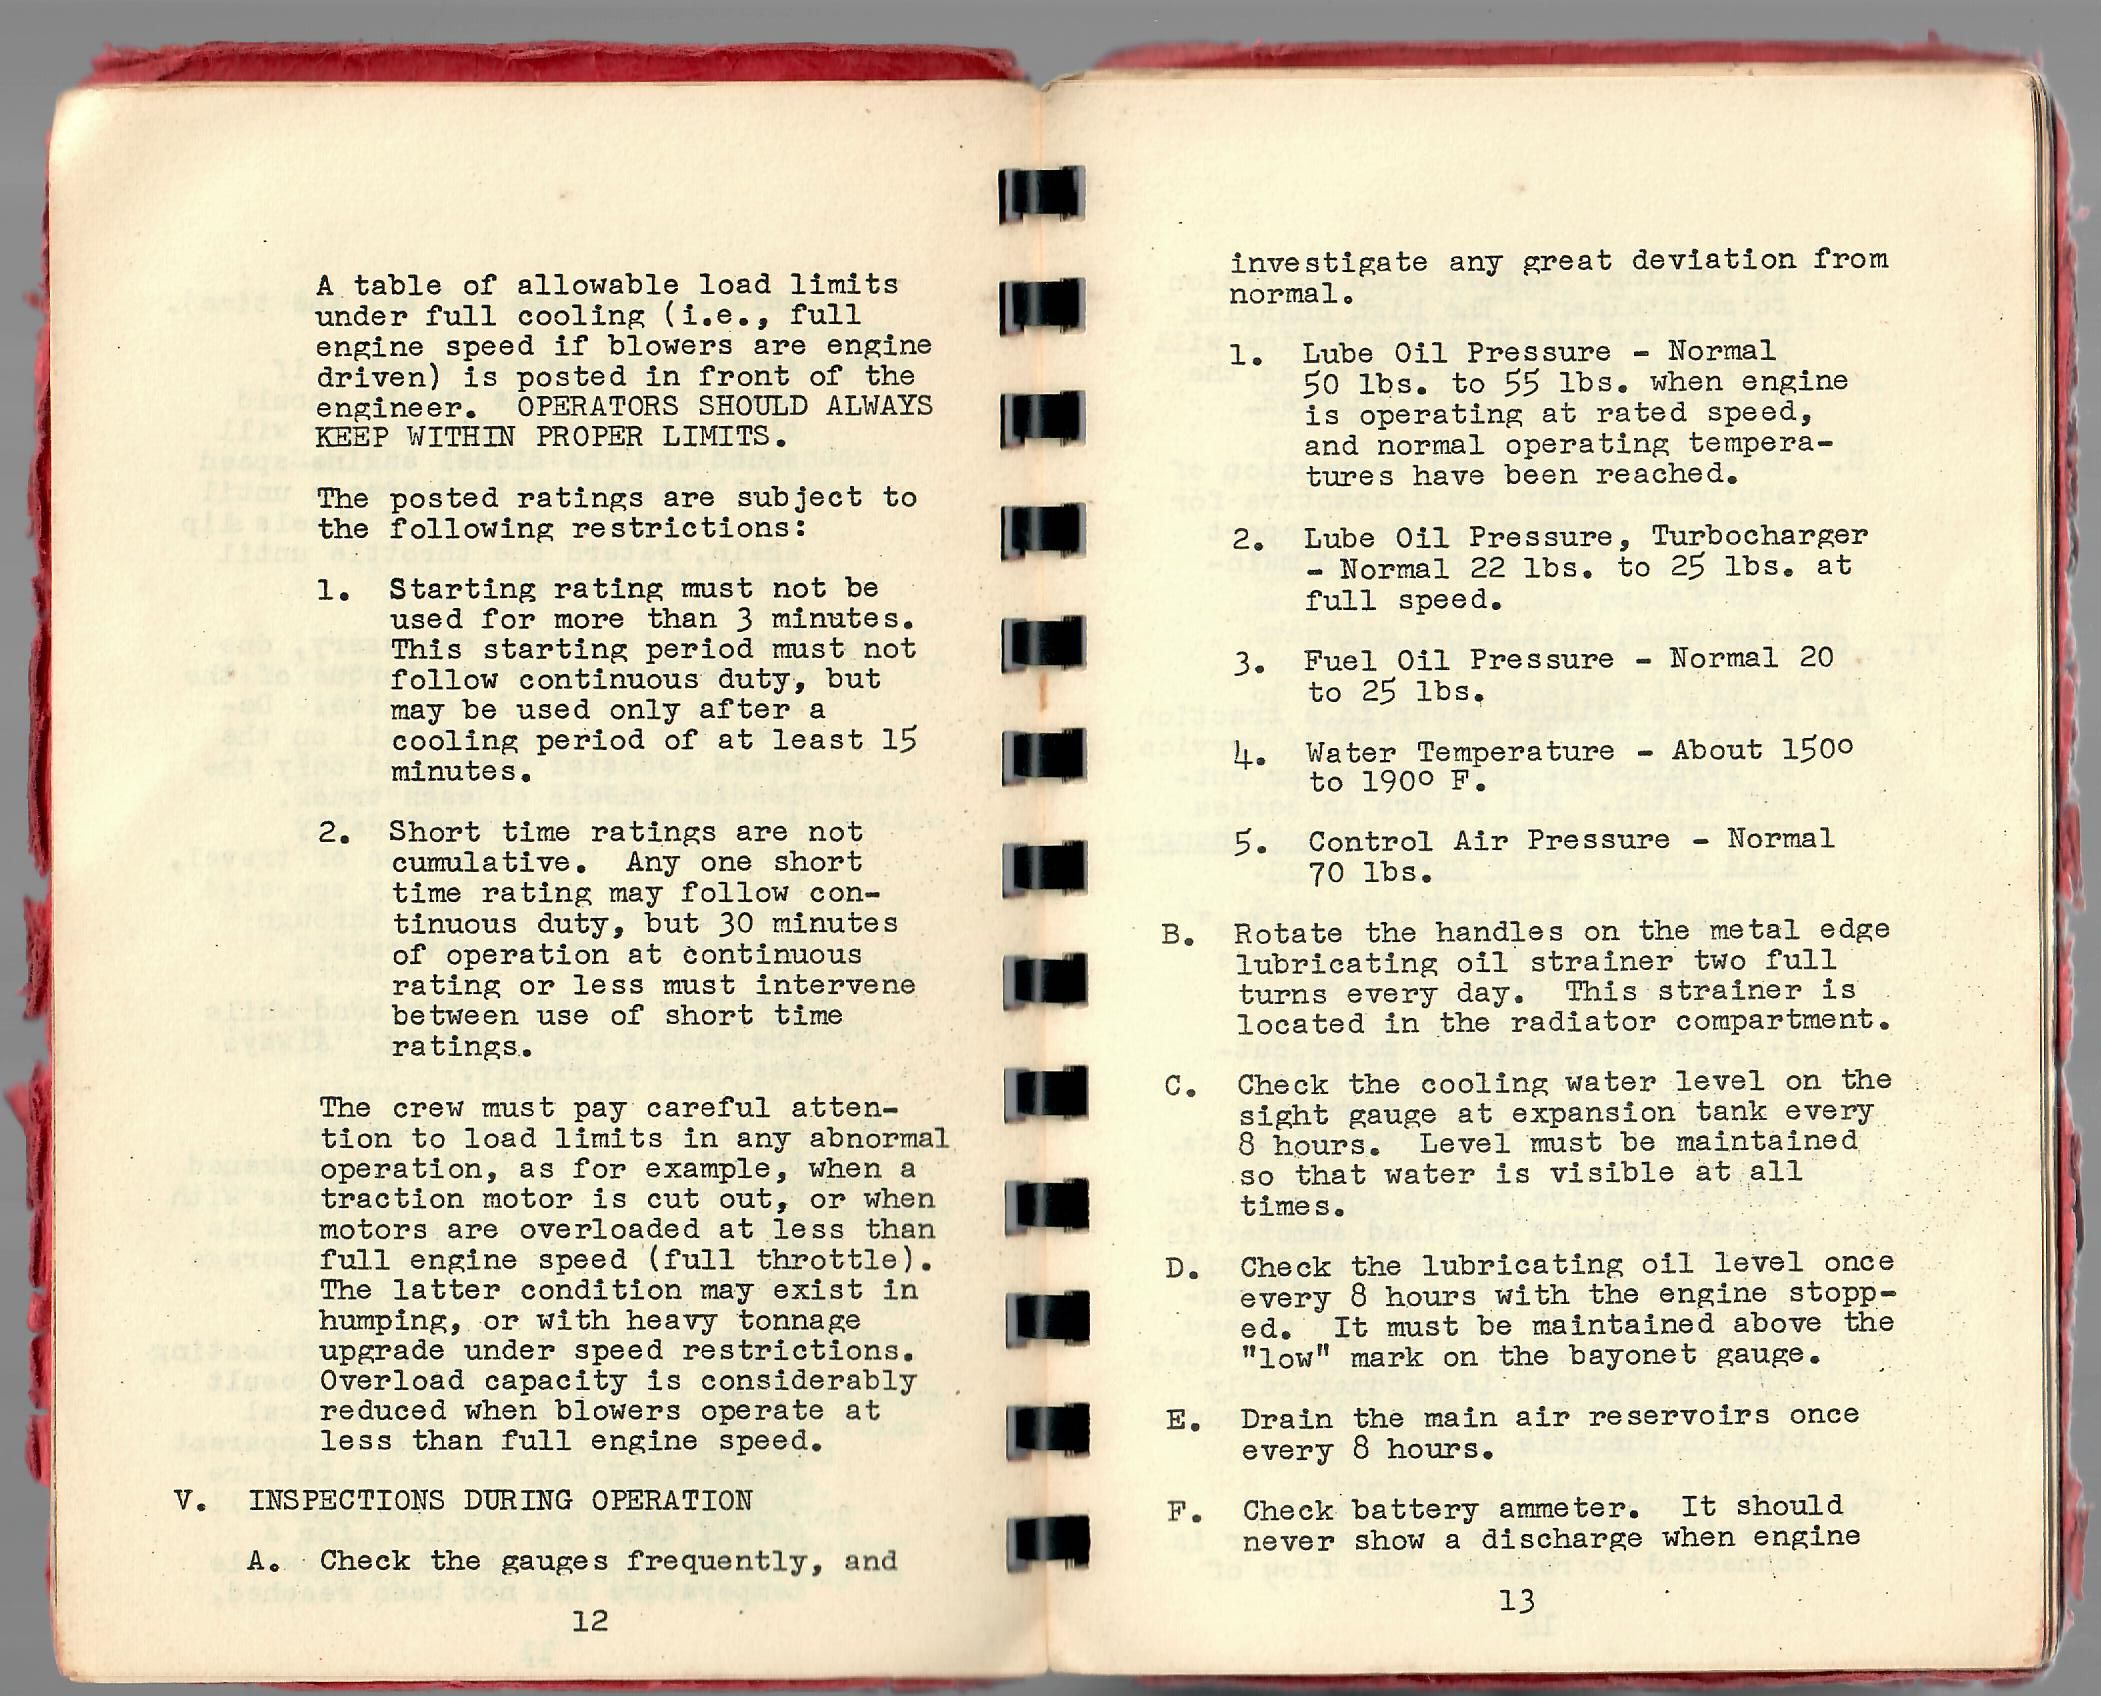 A table of allowable load limits
under full cooling (i.e., full
engine speed if blowers are engine
driven) is posted in front of the
engineer. OPERATORS SHOULD ALWAYS
KEEP WITHIN PROPER LIMITS.
The posted ratings are subject to
the following restrictions:
1. Starting rating must not be
used for more than 3 minutes.
This starting period must not
follow continuous duty, but
may be used only after a
cooling period of at least 15
minutes.
2. Short time ratings are not
cumulative. Any one short
time rating may follow con-
tinuous duty, but 30 minutes
of operation at continuous
rating or less must intervene
between use of short time
ratings.
The crew must pay careful atten-
tion to load limits in any abnormal
operation, as for example, when a
traction motor is cut out, or when
motors are overloaded at less than
full engine speed (full throttle).
The latter condition may exist in
humping, or with heavy tonnage
upgrade under speed restrictions.
Overload capacity is considerably
reduced when blowers operate at
less than full engine speed.
V. INSPECTIONS DURING OPERATION
A. Check the gauges frequently, and
12
investigate any great deviation from
normal.
1. Lube Oil Pressure - Normal
50 lbs. to 55 lbs. when engine
is operating at rated speed,
and normal operating tempera-
tures have been reached.
2. Lube Oil Pressure, Turbocharger
- Normal 22 lbs. to 25 lbs. at
full speed.
3. Fuel Oil Pressure - Normal 20
to 25 lbs.
4. Water Temperature - About 150º
to 190º F.
5. Control Air Pressure - Normal
70 lbs.
B. Rotate the handles on the metal edge
lubricating oil strainer two full
turns every day. This strainer is
located in the radiator compartment.
C. Check the cooling water level on the
sight gauge at expansion tank every
8 hours. Level must be maintained
so that water is visible at all
times.
D. Check the lubricating oil level once
every 8 hours with the engine stopp-
ed. It must be maintained above the
"low" mark on the bayonet gauge.
E. Drain the main air reservoirs once
every 8 hours.
F. Check battery ammeter. It should
never show a discharge when engine
13